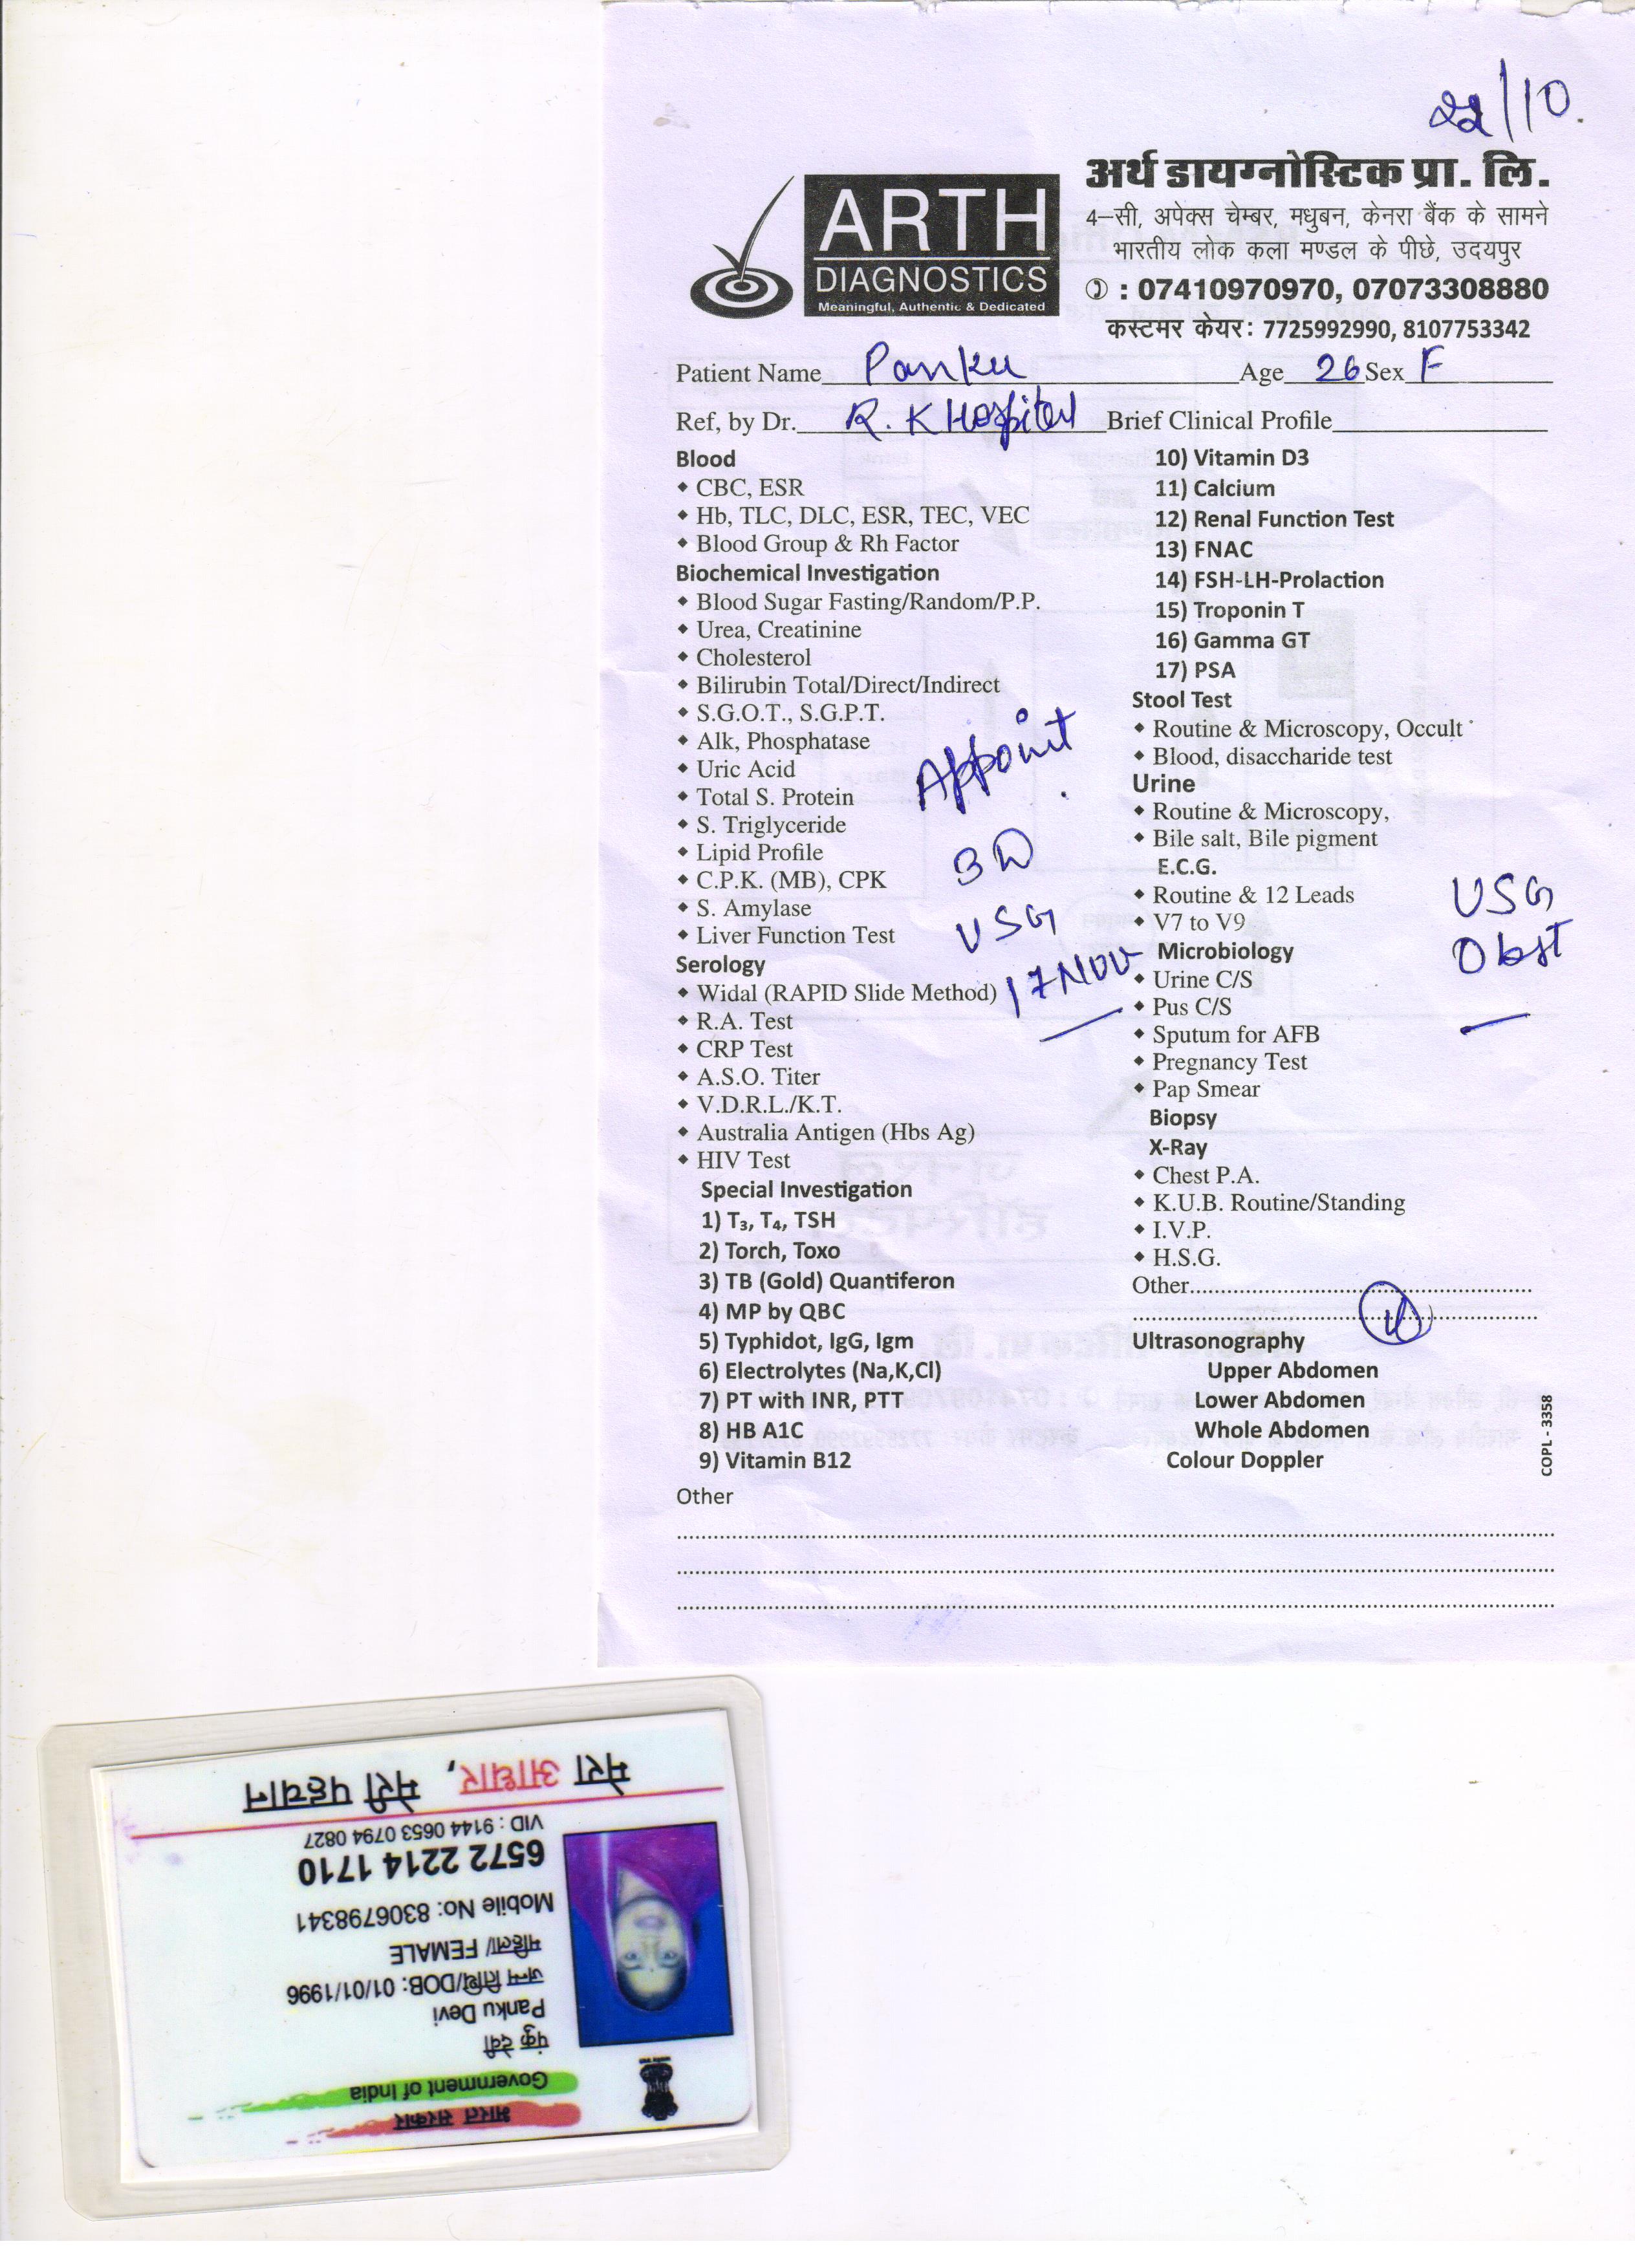 22/10.
ARTH
DIAGNOSTICS
Meaningful, Authentic & Dedicated
अर्थ डायग्नोस्टिक प्रा. लि.
4-सी, अपेक्स चेम्बर, मधुबन, केनरा बैंक के सामने
भारतीय लोक कला मण्डल के पीछे, उदयपुर
: 07410970970, 07073308880
कस्टमर केयर: 7725992990, 8107753342
Patient Name Panku Age 26 Sex F
Ref, by Dr. R. K Hospital Brief Clinical Profile
Blood
• CBC, ESR
• Hb, TLC, DLC, ESR, TEC, VEC
• Blood Group & Rh Factor
Biochemical Investigation
• Blood Sugar Fasting/Random/P.P.
• Urea, Creatinine
• Cholesterol
• Bilirubin Total/Direct/Indirect
• S.G.O.T., S.G.P.T.
• Alk, Phosphatase
• Uric Acid
• Total S. Protein
• S. Triglyceride
• Lipid Profile
• C.P.K. (MB), CPK
• S. Amylase
• Liver Function Test
Serology
• Widal (RAPID Slide Method)
• R.A. Test
• CRP Test
• A.S.O. Titer
• V.D.R.L./K.T.
• Australia Antigen (Hbs Ag)
• HIV Test
Special Investigation
1) T₃, T₄, TSH
2) Torch, Toxo
3) TB (Gold) Quantiferon
4) MP by QBC
5) Typhidot, IgG, Igm
6) Electrolytes (Na,K,Cl)
7) PT with INR, PTT
8) HB A1C
9) Vitamin B12
Appoint
3D
USG
17 NOV
10) Vitamin D3
11) Calcium
12) Renal Function Test
13) FNAC
14) FSH-LH-Prolaction
15) Troponin T
16) Gamma GT
17) PSA
Stool Test
• Routine & Microscopy, Occult
• Blood, disaccharide test
Urine
• Routine & Microscopy,
• Bile salt, Bile pigment
E.C.G.
• Routine & 12 Leads
• V7 to V9
Microbiology
• Urine C/S
• Pus C/S
• Sputum for AFB
• Pregnancy Test
• Pap Smear
Biopsy
X-Ray
• Chest P.A.
• K.U.B. Routine/Standing
• I.V.P.
• H.S.G.
Other
Ultrasonography
Upper Abdomen
Lower Abdomen
Whole Abdomen
Colour Doppler
USG
Obst
COPL - 3358
Other
भारत सरकार
Government of India
पंकु देवी
Panku Devi
जन्म तिथि/DOB: 01/01/1996
महिला/ FEMALE
Mobile No: 8306798341
6572 2214 1710
VID : 9144 0653 0794 0827
मेरा आधार, मेरी पहचान